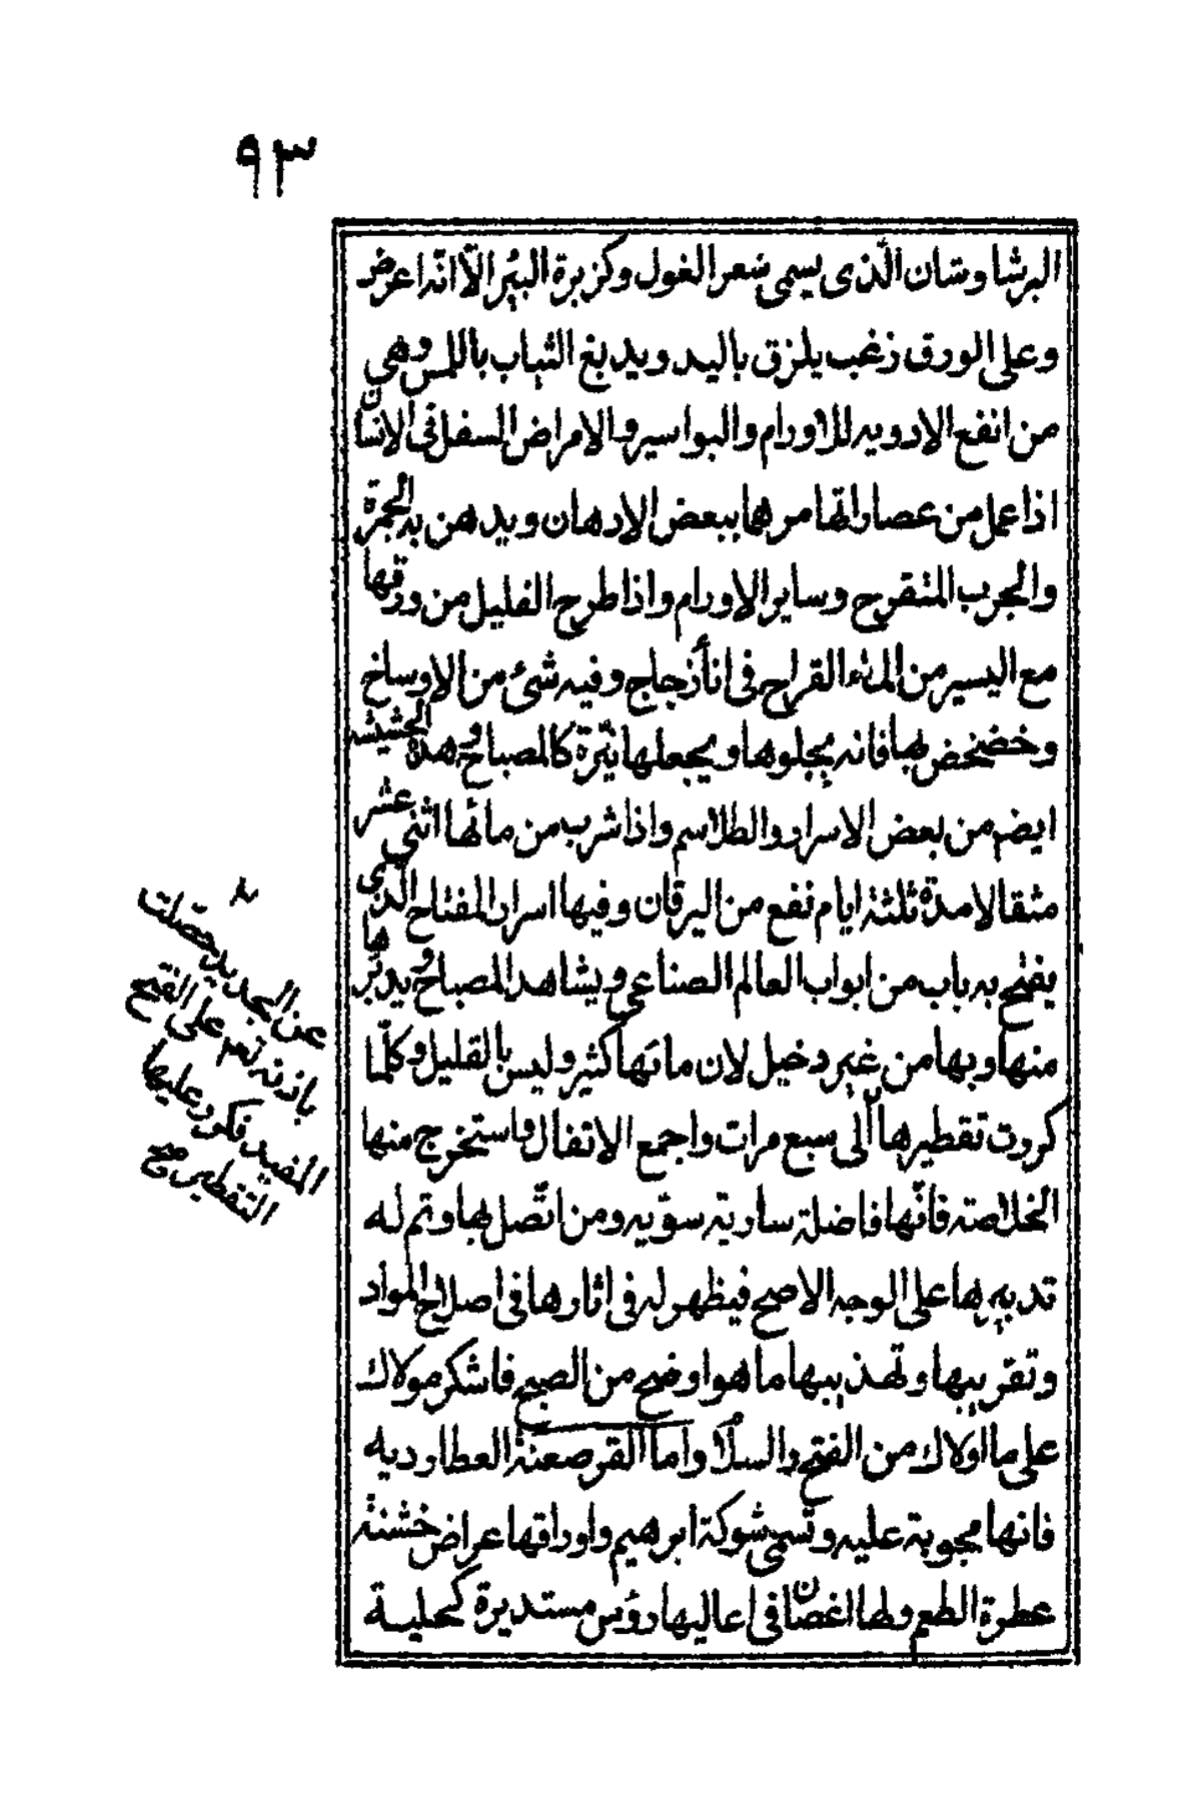 ٩٣
البرشاوشان الّذى يسمى شعر الغول وكزبرة البئر الّا انّه اعرض
وعلى الورق زغب يلزق باليد ويدبغ الثياب باللمس وهى
من انفع الادويه للاورام والبواسير والامراض السفل فى الانسان
اذا عمل من عصارتها مرهما ببعض الادهان ويدهن به الجمرة
والجرب المتقرح وساير الاورام واذا طرح القليل من ورقها
مع اليسير من الماء القراح فى اناء زجاج وفيه شئ من الاوساخ
وخضخض بها فانه يجلوها ويجعلها نيّرة كالمصباح وهذه الحشيشه
ايضم من بعض الاسرار والطلاسم واذا شرب من مائها اثنى عشر
مثقالا مدة ثلثة ايام نفع من اليرقان وفيها اسرار المفتاح الّذى
يفتح به باب من ابواب العالم الصناعى ويشاهد المصباح ويدبّرها
منها وبها من غير دخيل لان مائها كثير وليس بالقليل وكلّما
كررت تقطيرها الى سبع مرات واجمع الاتفال واستخرج منها
الخلاصته فانّها فاضلة سارية سوّيه ومن اتّصل بها وتم له
تدبيرها على الوجه الاصح فيظهر له فى اثارها فى اصلاح المواد
وتقريبها وتهذيبها ما هو اوضح من الصبح فاشكر مولاك
على ما اولاك من الفتح والسلام واما القرصعنة العطارديه
فانها مجوبة عليه وتسمى شوكة ابرهيم واوراقها عراض خشنة
عطرة الطعم ولها اغصان فى اعاليها رؤس مستديرة كحلية
عن الجديد حصلت
باذنه تعم على الفتح
المفيد فكرر عليها
التقطير صح